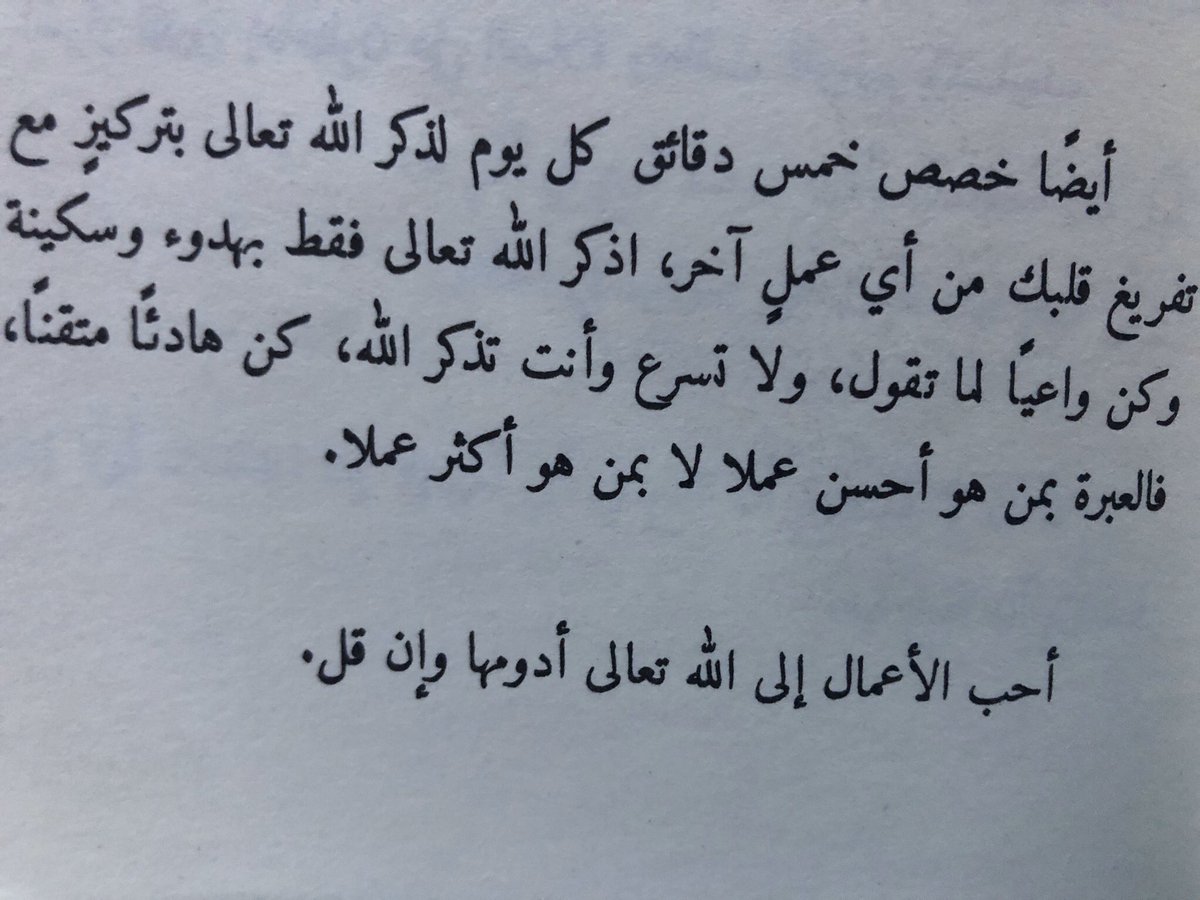 أيضًا خصص خمس دقائق كل يوم لذكر الله تعالى بتركيزٍ مع
تفريغ قلبك من أي عملٍ آخر، اذكر الله تعالى فقط بهدوء وسكينة
وكن واعيًا لما تقول، ولا تسرع وأنت تذكر الله، كن هادئًا متقنًا،
فالعبرة بمن هو أحسن عملا لا بمن هو أكثر عملا.
أحب الأعمال إلى الله تعالى أدومها وإن قل.